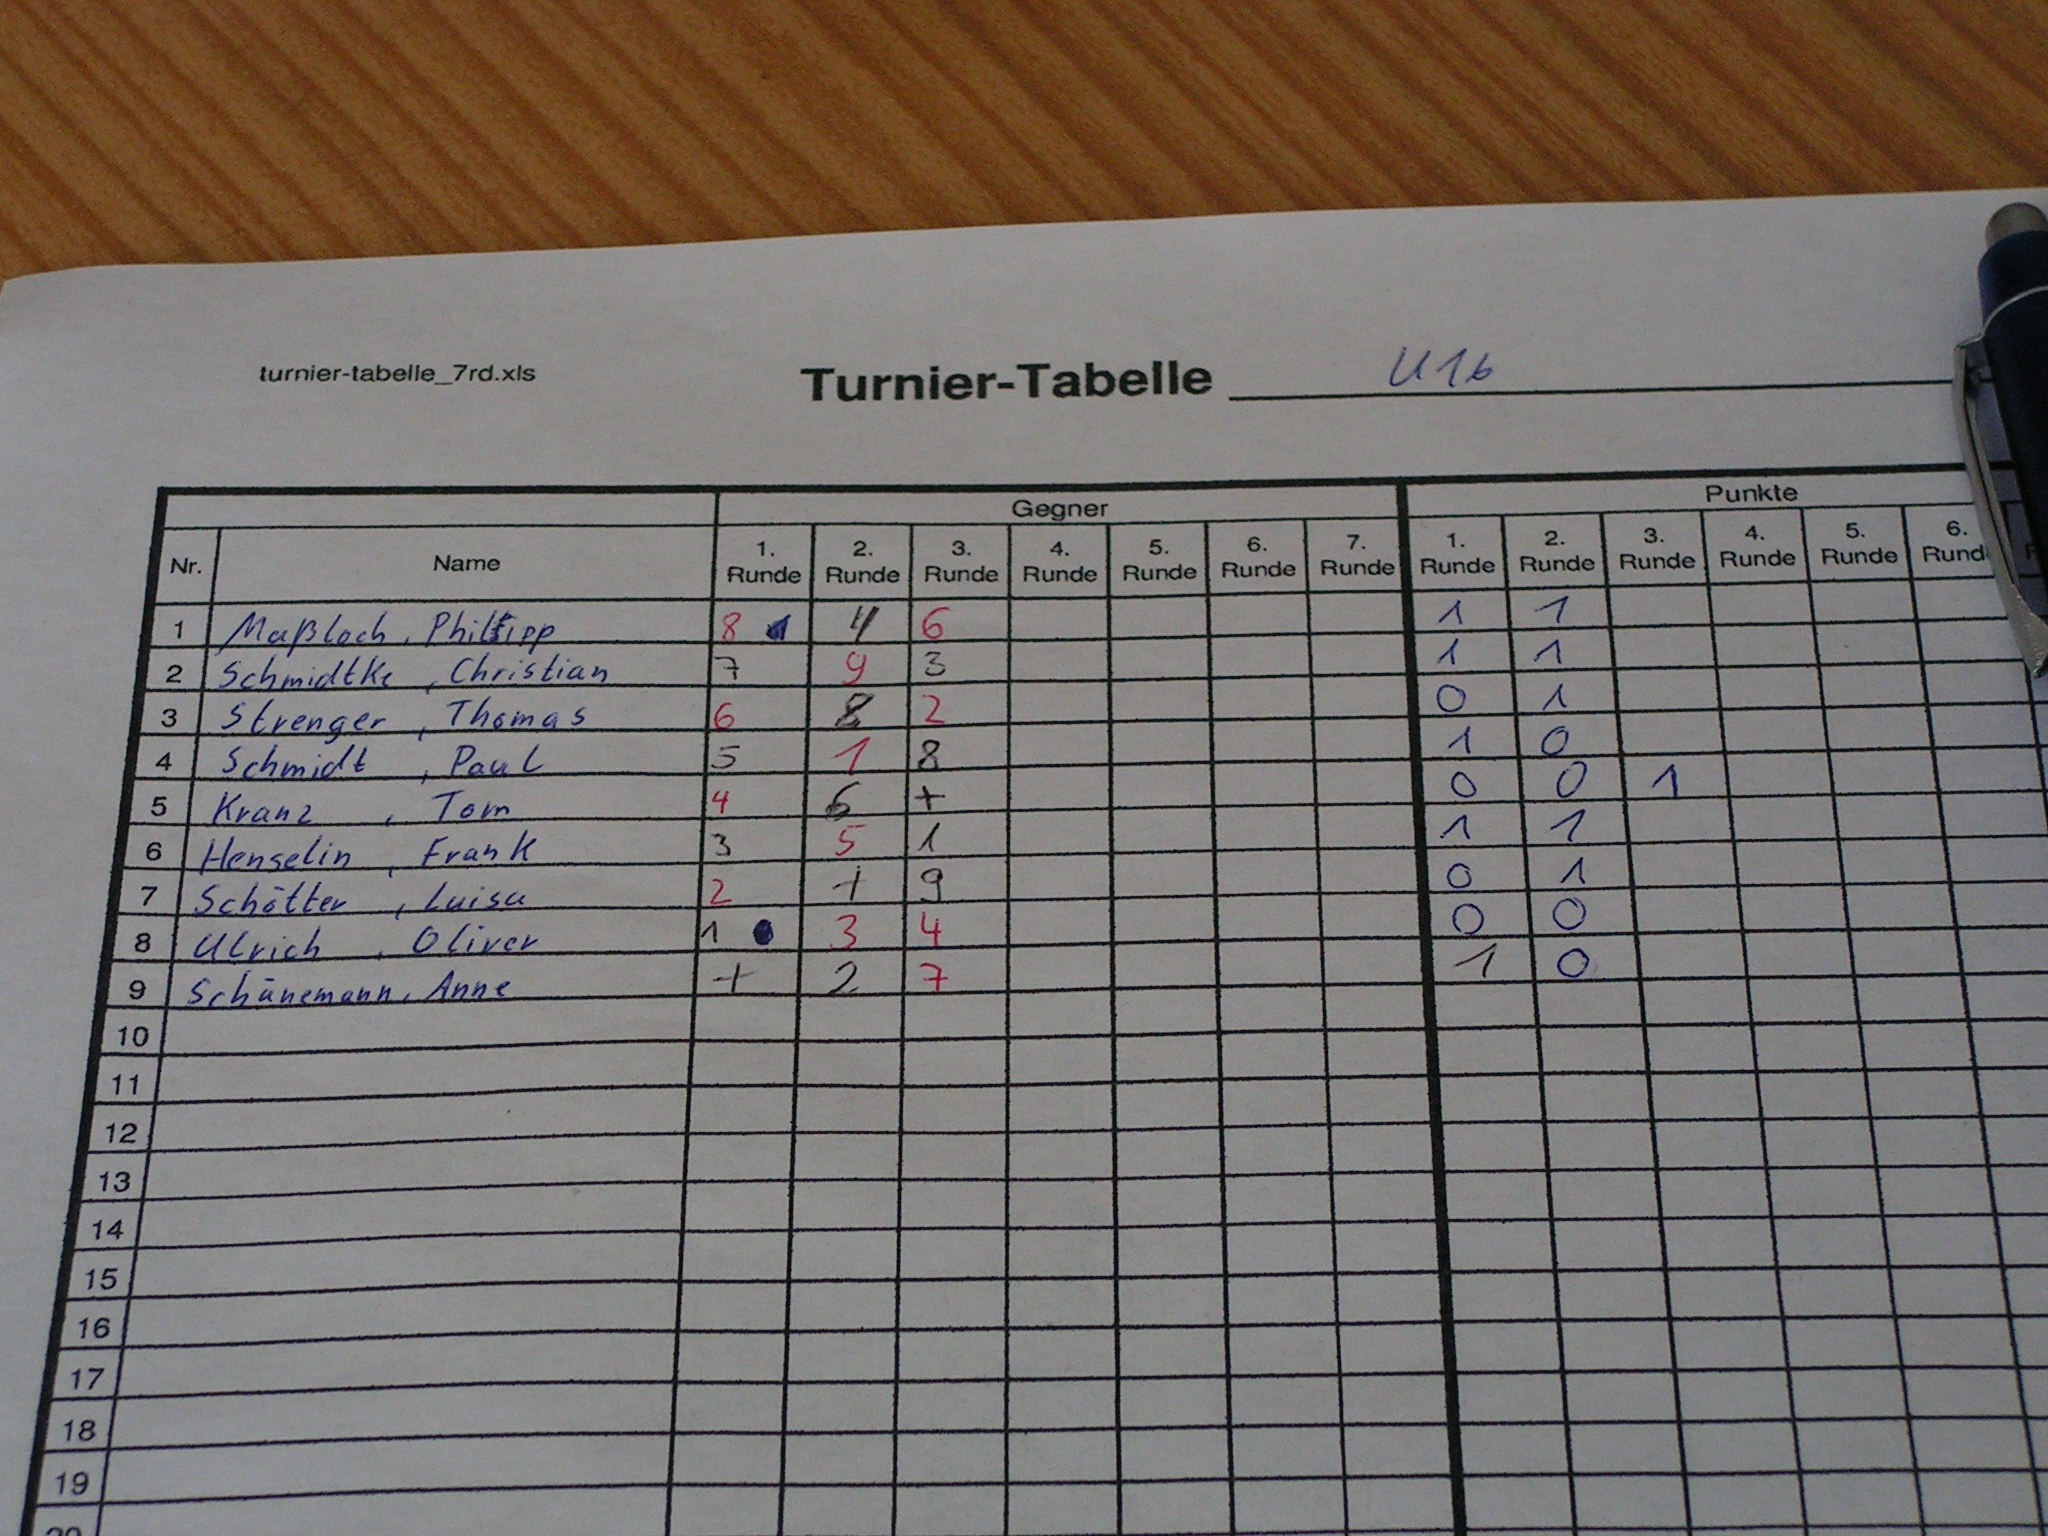 turnier-tabelle_7rd.xls
Turnier-Tabelle U16
Gegner Punkte
Nr. Name 1. Runde 2. Runde 3. Runde 4. Runde 5. Runde 6. Runde 7. Runde 1. Runde 2. Runde 3. Runde 4. Runde 5. Runde 6. Rund
1 Maßloch, Philipp 8 4 6 1 1
2 Schmidtke, Christian 7 9 3 1 1
3 Strenger, Thomas 6 8 2 0 1
4 Schmidt, Paul 5 1 8 1 0
5 Kranz, Tom 4 6 + 0 0 1
6 Henselin, Frank 3 5 1 1 1
7 Schötter, Luisa 2 + 9 0 1
8 Ulrich, Oliver 1 3 4 0 0
9 Schünemann, Anne + 2 7 1 0
10
11
12
13
14
15
16
17
18
19
20